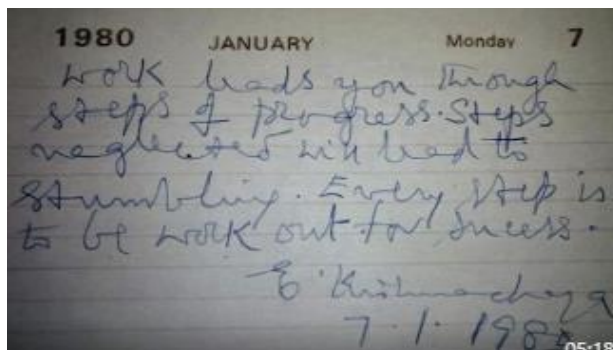 1980 JANUARY Monday 7
Work leads you through
steps of progress. Steps
neglected will lead to
stumbling. Every step is
to be work out for sucess.
E. Krishnamacharya
7.1.1980
05:18